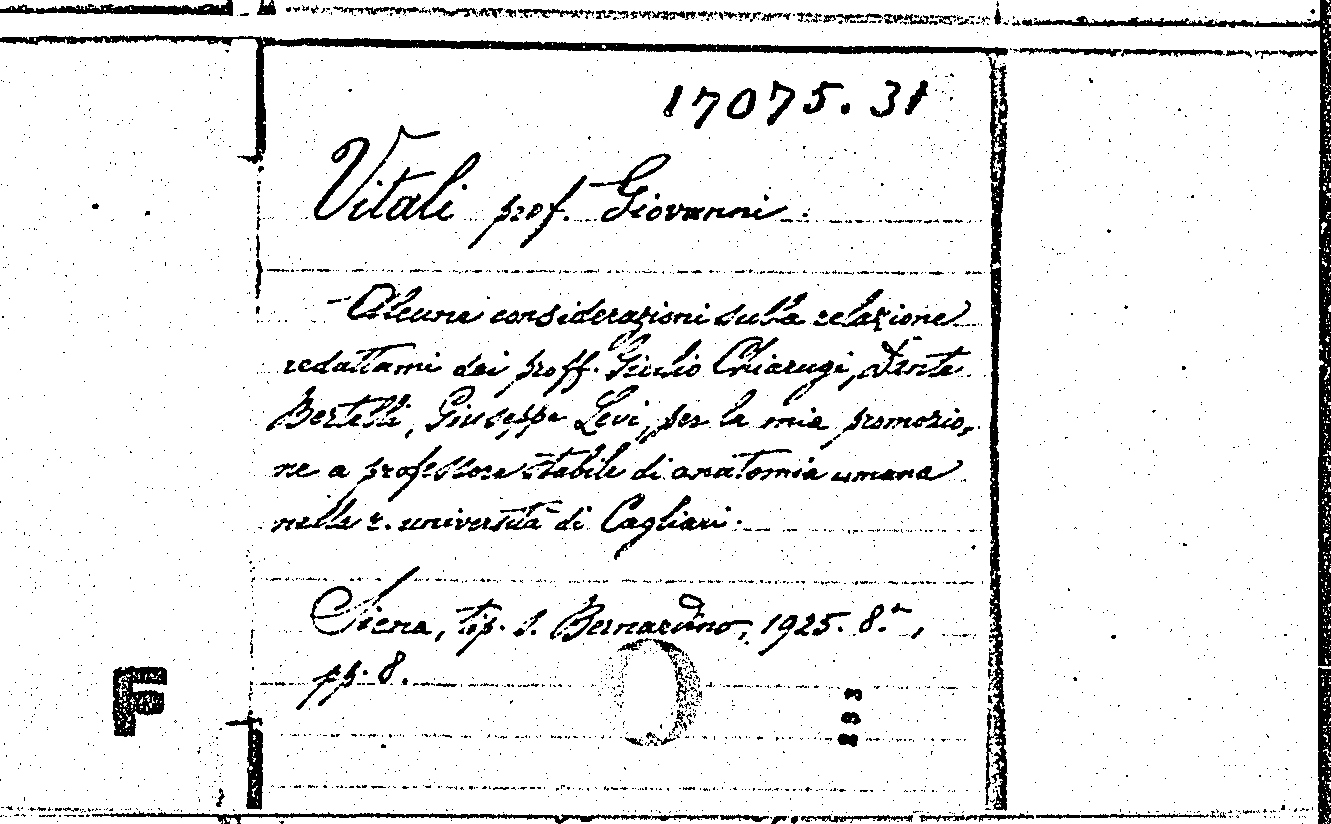 17075. 31
Vitali prof. Giovanni.
Alcune considerazioni sulla relazione
redattami dai proff. Giulio Chiarugi, Dante
Bertelli, Giuseppe Levi, per la mia promozio-
ne a professore stabile di anatomia umana
nella r. università di Cagliari.
Siena, tip. s. Bernardino, 1925. 8.°,
pp. 8.
F